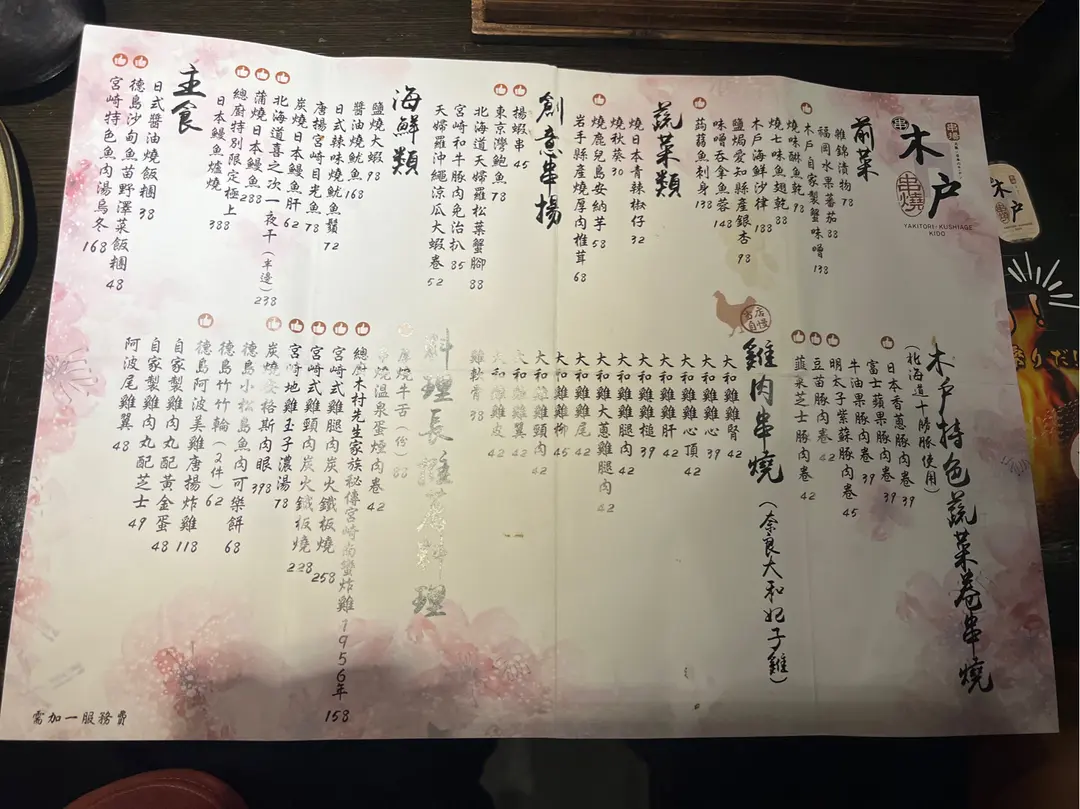 木戶
串燒
YAKITORI · KUSHIAGE
KIDO
前菜
雜錦漬物 78
福岡水果蕃茄 88
木戶自家製蟹味噌 138
燒味醂魚乾 98
燒七味魚翅乾 88
木戶海鮮沙律 188
鹽焗愛知縣產銀杏 98
味噌吞拿魚蓉 148
蒟蒻魚刺身 138
蔬菜類
燒日本青辣椒仔 32
燒秋葵 30
燒鹿兒島安納芋 58
岩手縣產燒厚肉椎茸 68
創意串揚
揚蝦串 45
東京灣鮑魚 78
北海道天婦羅松葉蟹腳 88
宮崎和牛豚肉免治扒 85
天婦羅沖繩涼瓜大蝦卷 52
海鮮類
鹽燒大蝦 98
醬油燒魷魚 168
日式辣味燒魷魚鬚 72
唐揚宮崎目光魚 78
炭燒日本鰻魚肝 62
北海道喜之次一夜干(半邊) 238
蒲燒日本鰻魚 288
總廚特別限定極上
日本鰻魚爐燒 388
主食
日式醬油燒飯糰 38
德島沙甸魚苗野澤菜飯糰 48
宮崎特色魚肉湯烏冬 168
木戶特色蔬菜卷串燒
(北海道十勝豚使用)
日本香蔥豚肉卷 39
富士蘋果豚肉卷 39
牛油果豚肉卷 39
明太子紫蘇豚肉卷 45
豆苗豚肉卷 42
韮菜芝士豚肉卷 42
雞肉串燒(奈良大和妃子雞)
大和雞雞腎 42
大和雞雞心 39
大和雞雞心頂 42
大和雞雞肝 42
大和雞雞槌 39
大和雞雞腿肉 42
大和雞大蔥雞腿肉 42
大和雞雞尾 42
大和雞雞柳 45
大和雞雞頸肉 42
大和雞雞翼 42
大和雞雞皮 42
雞軟骨 38
料理長推薦料理
厚燒牛舌(份) 88
串燒溫泉蛋煙肉卷 42
總廚木村先生家族秘傳宮崎南蠻炸雞1956年 158
宮崎式雞腿肉炭火鐵板燒 258
宮崎式雞頸肉炭火鐵板燒 228
宮崎地雞玉子濃湯 78
炭燒安格斯肉眼 398
德島小松島魚肉可樂餅 68
德島竹竹輪(2件) 62
德島阿波美雞唐揚炸雞 118
自家製雞肉丸配黃金蛋 48
自家製雞肉丸配芝士 49
阿波尾雞翼 48
需加一服務費
木戶